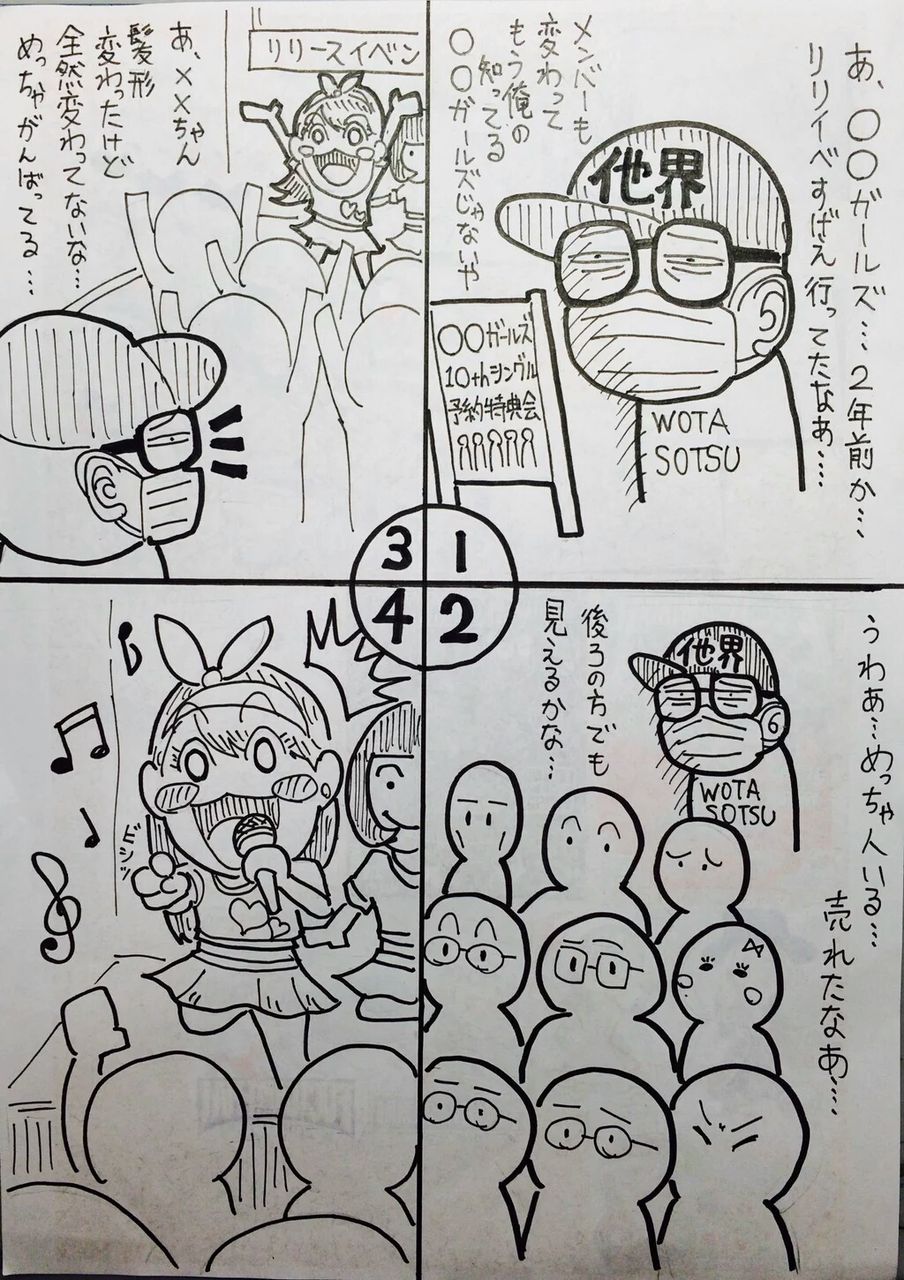 あ、○○ガールズ…2年前か…
リリイベすげえ行ってたなぁ…
メンバーも
変わって
もう俺の
知ってる
○○ガールズじゃないや
他界
WOTA
SOTSU
○○ガールズ
10thシングル
予約特典会
1
うわぁ…めっちゃ人いる…
売れたなあ…
後ろの方でも
見えるかな…
他界
WOTA
SOTSU
2
リリースイベン
あ、××ちゃん
髪形
変わったけど
全然変わってないな…
めっちゃがんばってる…
3
4